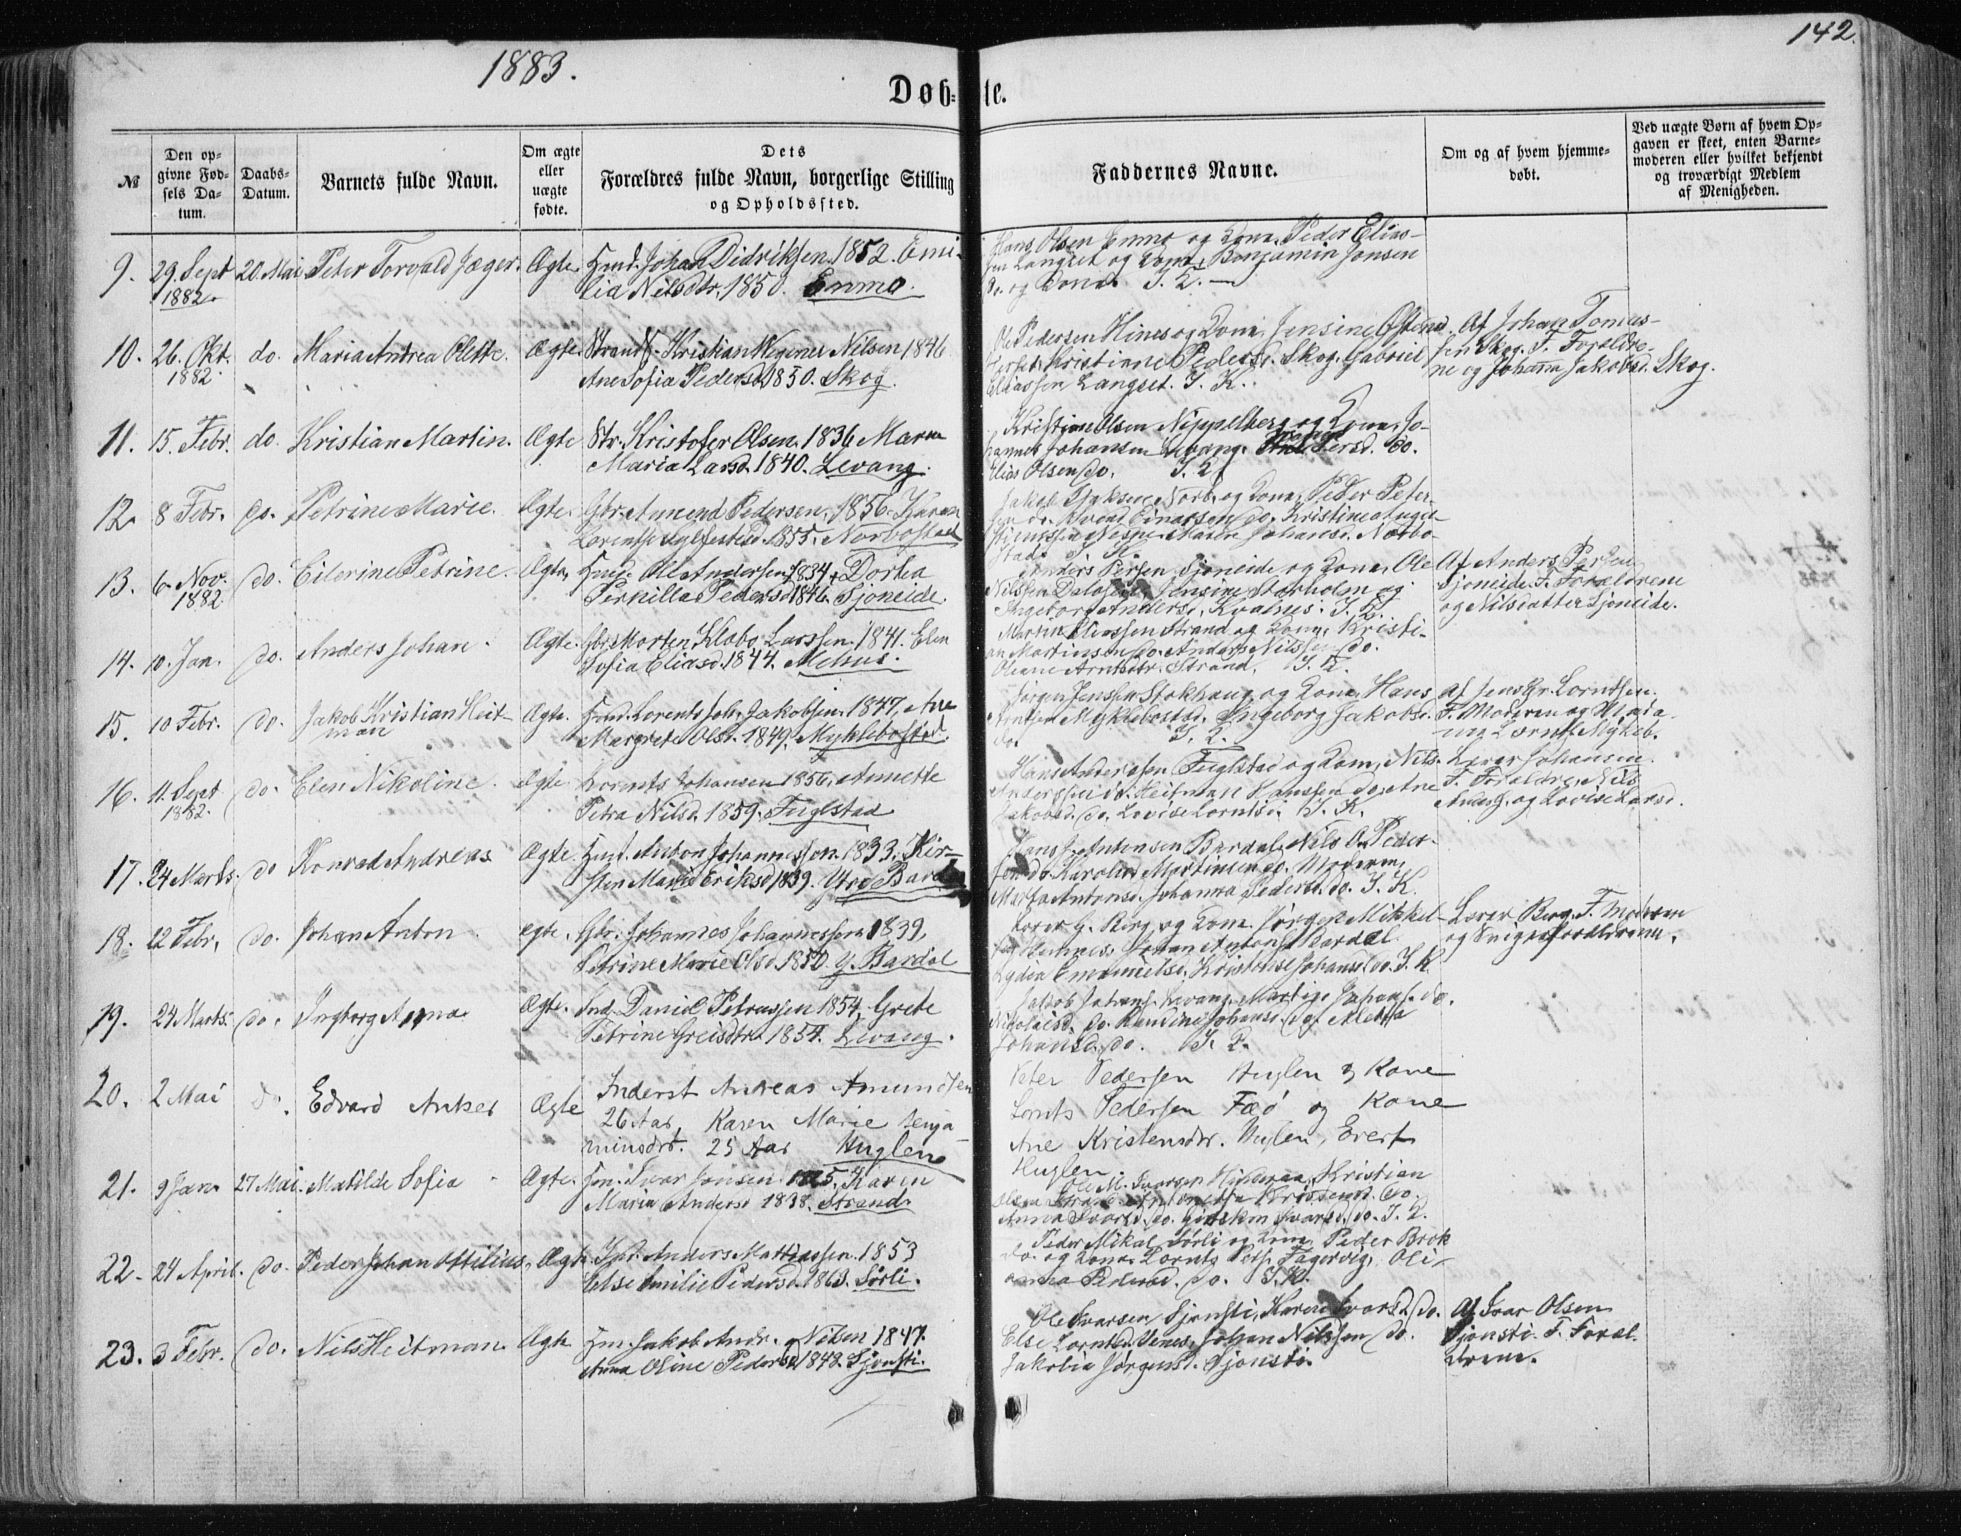 1883.
142.
Døb-te.
№
Den op-
givne Fød-
sels Da-
tum.
Daabs-
Datum.
Barnets fulde Navn.
Om ægte
eller
uægte
fødte.
Dets
Forældres fulde Navn, borgerlige Stilling
og Opholdssted.
Faddernes Navne.
Om og af hvem hjemme-
døbt.
Ved uægte Børn af hvem Op-
gaven er skeet, enten Barne-
moderen eller hvilket bekjendt
og troværdigt Medlem
af Menigheden.
9. 29. Sept 20. Mai Peter Torvald Jæger. Ægte. Hmd. Johan Didriksen. 1852. Emi-
1882. lia Nilsdtr. 1850. Enmo.
Hans Olsen Enmo og Kone, Peder Elias-
sen Langset og Kone, Benjamin Jonsen
do. og Kone. I. K.
10. 26. Okt. do. Maria Andrea Olette. Ægte. Strands. Kristian Wegener Nilsen 1846
1882. Ane Sofia Pedersd. 1850. Skog.
Ole Pedersen Hines og Kone, Jensine
Kristiane Pedersd. Skog. Gabriel
Eliassen Langset. I. K.
Af Johan Tomas-
sen Skog. F. Forældre-
ne og Johanna Jakobsd. Skog.
11. 15. Febr. do. Kristian Martin. Ægte Str. Kristofer Olsen. 1836 Maren
Maria Larsd. 1840. Levang.
Kristian Olsen Nippelberg og Kone, Jo-
hannes Johansen Levang. Persd. do.
Elias Olsen do. I. K.
12. 8 Febr. do. Petrine Marie. Ægte. Gbr. Amund Pedersen. 1856. Karen
1855. Norbostad
Jakob Norb. og Kone, Peder Peter-
sen do. Einarsen do. Kristine
Nesse. Maren Johansd. Norbo-
stad. I. K.
13. 6. Nov. do. Eilerine Petrine. Ægte. Hmd. Ole Andersen 1834 + Dortea
1882 Pernilla Pedersd. 1846. Sjoneide.
Anders Persen Sjoneide og Kone, Ole
Nilssen Dalosen, Jensine Storholm og
Ingeborg Andersd. Kvalnes. I. K.
Af Anders Persen
Sjoneide. F. Forældrene
og Nilsdatter Sjoneide.
14. 10. Jan. do. Anders Johan. Ægte. Gbr. Morten Klabo Larssen. 1841. Elen
Sofia Eliasd. 1844. Mehus.
Martin Eliassen Strand og Kone, Kristi-
an Martinsen do. Anders Nilssen do.
Oliane Arntsdtr. Strand. I. K.
15. 10 Febr. do. Jakob Kristian Heit-
man
Ægte. Hmd. Lorents Joh. Jakobsen. 1847, Ane
Margrete Olsd. 1849. Myklebostad.
Jørgen Jenssen Stokhaug og Kone, Hans
Myklebostad, Ingeborg Jakobsd.
do. I. K.
Af Jens Kr. Lorntsen.
F. Moderen og
Lorents. Mykleb.
16. 11. Sept do. Elen Nikoline. Ægte Lornts Johansen 1856, Annette
1882. Petra Nilsd. 1859. Fuglstad
Hans Andersen Fuglstad og Kone, Nils
Anderssen do. Heitman Hanssen do. Ane
Jakobsd. do. Lovise Lorntsd. I. K.
Lærer Johansen.
F. Forældre, Nils
Anders. og Lovise Larsd.
17. 24 Marts. do Konrad Andreas Ægte. Hmd. Anton Johannessen. 1833. Kir-
sten Maria Eriksd. 1839. Ytre Bardal
Hans J. Antonsen Bardal, Nils O. Peder-
sen do. Karoline Martinsen do. Moderen,
Marta Antonsd. Johanna Pedersd. do. I. K.
18. 22 Febr. do. Johan Anton. Ægte. Gbr. Johannes Johannessen 1839,
Petrine Marie Olsd. 1850. Y. Bardal
Lærer G. Berg og Kone. Jørgen Mikkel-
sen Johan Antons. Bardal.
Lydia Emanuelsd. Kristense Johansd. do. I. K.
Lærer Berg. F. Moderen
og Svigerforældrene.
19. 24 Marts. do. Ingborg Anna Ægte. Ind. Daniel Petersen 1854, Grete
Petrine Greisdtr. 1854. Levang.
Jakob Levang. Johans. do.
Nikolaisd. do. Johansd. do. Aletta
Johansd. do. I. K.
20. 2 Mai do. Edvard Anker Ægte Inderst Andreas Amundsen
26 Aar, Karen Marie Benja-
minsdtr. 25 Aar Huglen
Peter Pedersen Huglen og Kone
Lornts Pedersen Fæø og Kone
Ane Kristensdtr. Huglen, Evert
Huglen.
21. 9 Jan 27 Mai. Matilde Sofia Ægte. Hm. Ivar Jonsen 1825. Karen
Maria Andersd 1838. Strand.
Ole M. Ivarsen Hinderaa, Kristian
Olsen Strand
Anna Ivarsd. do. Ivarsd. do. I. K.
22. 24 April. do. Peder Johan Ottelius. Ægte Anders Mathiassen. 1853
Else Amilie Pedersd. 1863. Sørli.
Peder Mikal. Sørli og Kone, Peder Brok
do. og Kone. Lornts Peters. Fagervig, Oli-
anna Pedersd. do. I. K.
23. 3 Febr. do. Nils Heitman Ægte Hm. Jakob Andr. Nilsen 1847.
Anna Oline Pedersd. 1848. Sjonsti.
Ole Ivarsen Sjonsti, Karen Ivarsd. do.
Else Lorntsd. Venes, Johan Nilssen do.
Jakobia Jørgensd. Sjonsti.
Af Ivar Olsen
Sjonsti. F. Foræl-
drene.